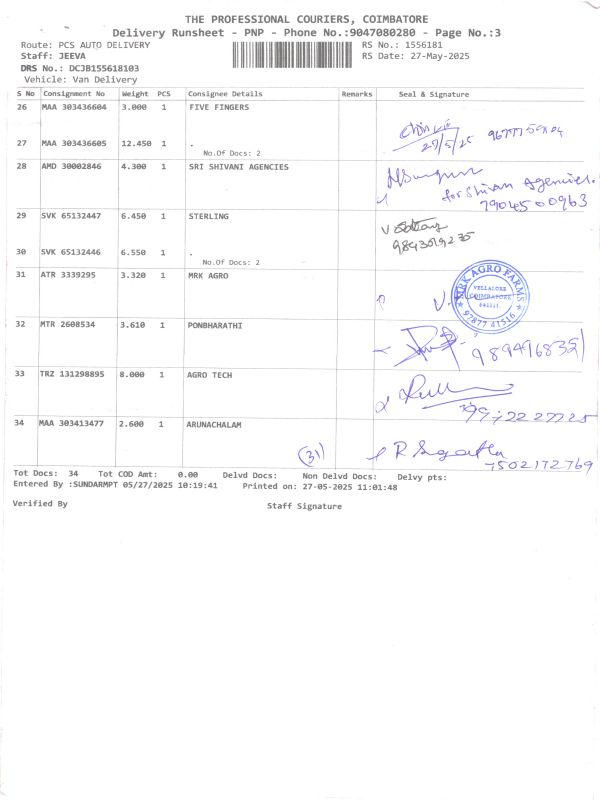 THE PROFESSIONAL COURIERS, COIMBATORE
Delivery Runsheet - PNP - Phone No.:9047080280 - Page No.:3
Route: PCS AUTO DELIVERY RS No.: 1556181
Staff: JEEVA RS Date: 27-May-2025
DRS No.: DCJB155618103
Vehicle: Van Delivery
S No Consignment No Weight PCS Consignee Details Remarks Seal & Signature
26 MAA 303436604 3.000 1 FIVE FINGERS
27/5/25
27 MAA 303436605 12.450 1 .
No.Of Docs: 2
28 AMD 30002846 4.300 1 SRI SHIVANI AGENCIES
for Shivani Agencies.
7904500963
29 SVK 65132447 6.450 1 STERLING
9843619235
30 SVK 65132446 6.550 1 .
No.Of Docs: 2
31 ATR 3339295 3.320 1 MRK AGRO
MRK AGRO FARMS
VELLALORE
COIMBATORE
641111
97877 41516
32 MTR 2608534 3.610 1 PONBHARATHI
33 TRZ 131298895 8.000 1 AGRO TECH
34 MAA 303413477 2.600 1 ARUNACHALAM
(31)
7502172769
Tot Docs: 34 Tot COD Amt: 0.00 Delvd Docs: Non Delvd Docs: Delvy pts:
Entered By :SUNDARMPT 05/27/2025 10:19:41 Printed on: 27-05-2025 11:01:48
Verified By Staff Signature